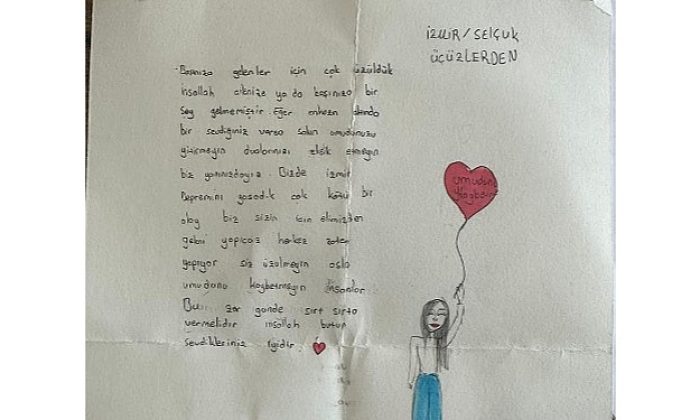 İZMİR / SELÇUK
ÜÇÜZLERDEN
Başınıza gelenler için çok üzüldük
inşallah ailenize ya da başınıza bir
şey gelmemiştir. Eğer enkazın altında
bir sevdiğiniz varsa sakın umudunuzu
yitirmeyin dualarınızı eksik etmeyin
biz yanınızdayız. Bizde izmir
Depremini yaşadık çok kötü bir
olay biz sizin için elimizden
geleni yapıcaz herkez zaten
yapıyor siz üzülmeyin asla
umudunu kaybetmeyin insanlar
Bu zor günde sırt sırta
vermelidir inşallah bütün
sevdikleriniz iyidir.
umudunu